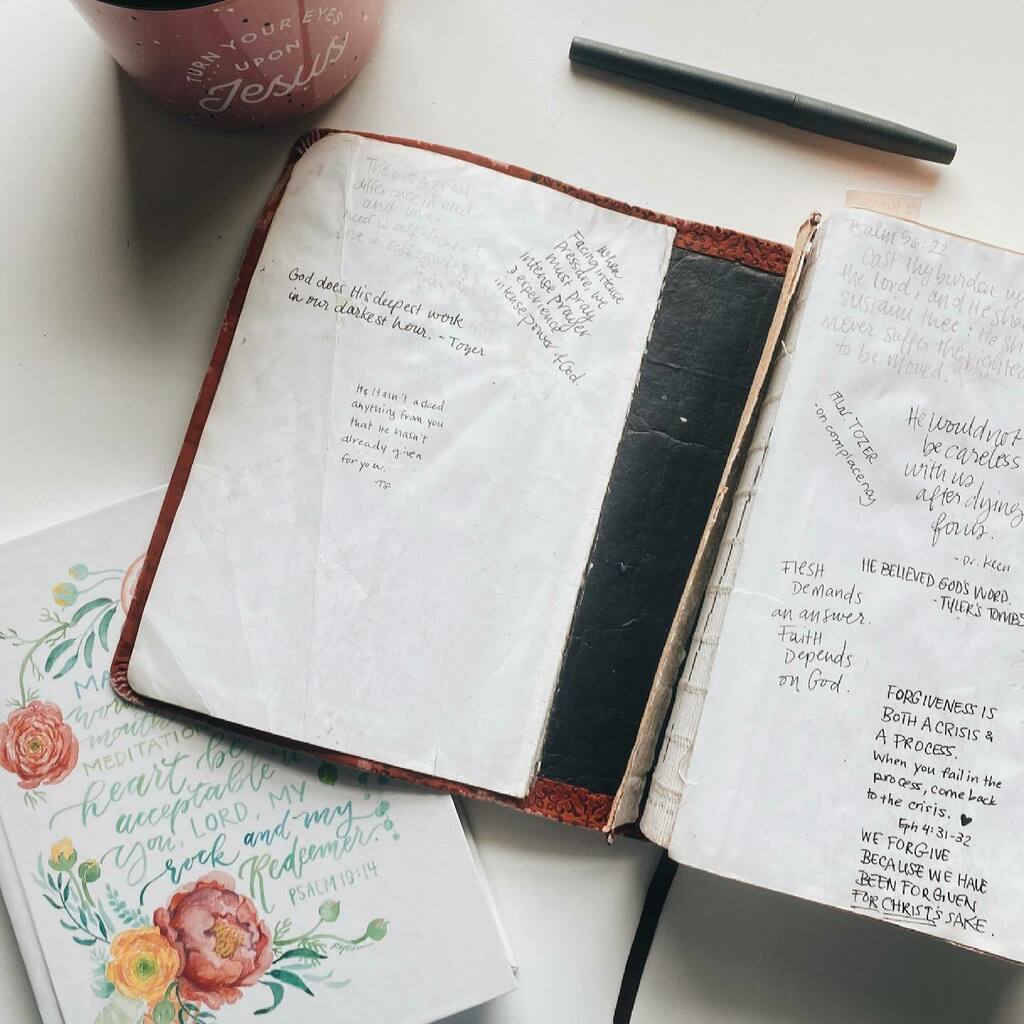 TURN YOUR EYES
UPON
Jesus
There is a great
difference in need
and love.
need is self-focused
love is self-giving
When
Facing intense
pressure, we
must pray
intense prayer
& experience
intense power of God.
God does His deepest work
in our darkest hour. - Tozer
He Hasn't asked
anything from you
that He hasn't
already given
for you.
-TB
Psalm 56:22
Cast thy burden up
the Lord, and He sha
sustain thee: He sh
never suffer the righteo
to be moved.
A.W. TOZER
-on complacency
He would not
be careless
with us
after dying
for us.
- Dr. Keen
HE BELIEVED GOD'S WORD.
-TYLER'S TOMBS
Flesh
Demands
an answer.
Faith
Depends
on God.
FORGIVENESS IS
BOTH A CRISIS &
A PROCESS.
when you fail in the
process, come back
to the crisis. ♥
Eph 4:31-32
WE FORGIVE
BECAUSE WE HAVE
BEEN FORGIVEN
FOR CHRIST'S SAKE.
MA
wor
mouth
MEDITATION
heart be
acceptable to
you, LORD, MY
rock and my
Redeemer.
PSALM 19:14